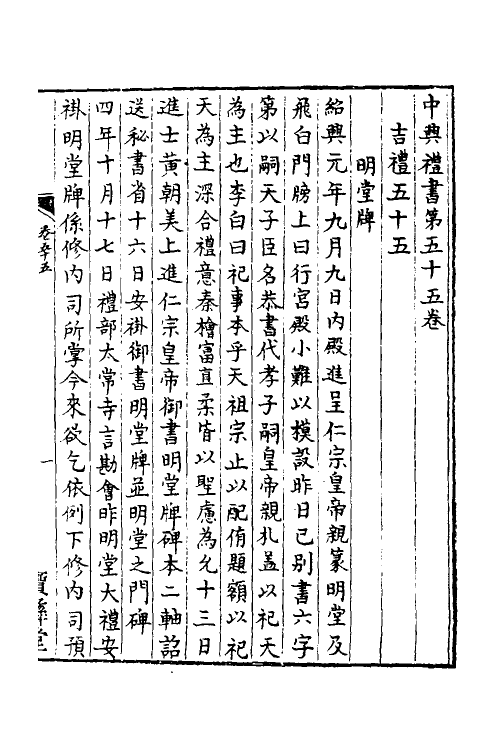 中興禮書第五十五卷
吉禮五十五
明堂牌
紹興元年九月九日內殿進呈仁宗皇帝親篆明堂及
飛白門牓上曰行宮殿小難以模設昨日已別書六字
第以嗣天子臣名恭書代孝子嗣皇帝親札蓋以祀天
為主也李白曰祀事本乎天祖宗止以配侑題額以祀
天為主深合禮意秦檜富直柔皆以聖慮為允十三日
進士黄朝美上進仁宗皇帝御書明堂牌碑本二軸詔
送秘書省十六日安掛御書明堂牌並明堂之門碑
四年十月十七日禮部太常寺言勘會昨明堂大禮安
掛明堂牌係修內司所掌今來欲乞依例下修內司預
卷五十五
一
寶彝堂